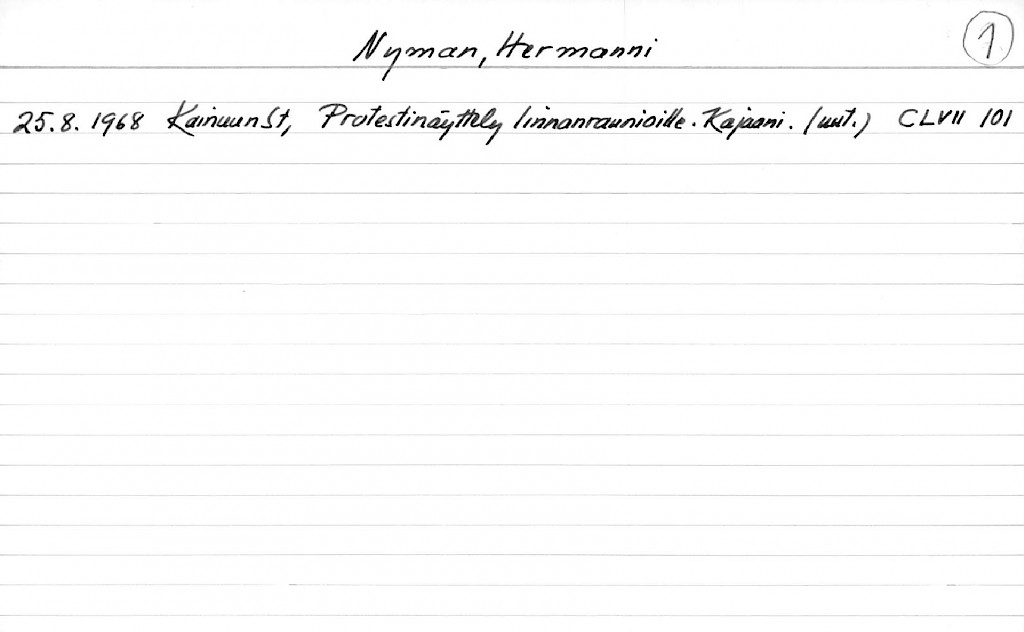 Nyman, Hermanni
1
25.8.1968 KainuunSt, Protestinäyttely linnanraunioille. Kajaani. (uut.) CLVII 101